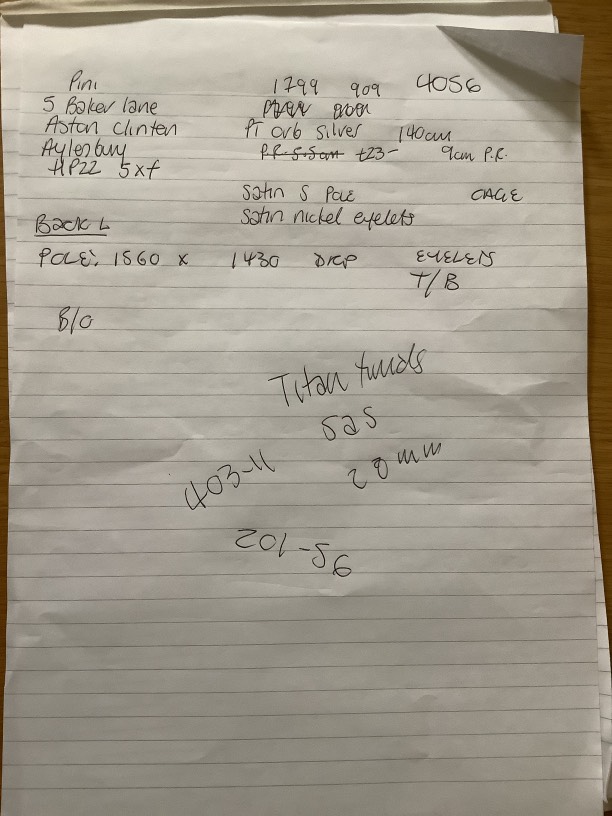 Pini 1799 909 4056
5 Baker lane
Aston Clinton Pi orb silver 140cm
Aylesbury P.R. 5.5cm £23- 9cm P.R.
HP22 5xf
Satin S Pole CAGE
Satin nickel eyelets
BACK L
POLE: 1560 x 1430 DROP EYELETS
T/B
B/O
Titan
525
20 mm
403-11
201-56